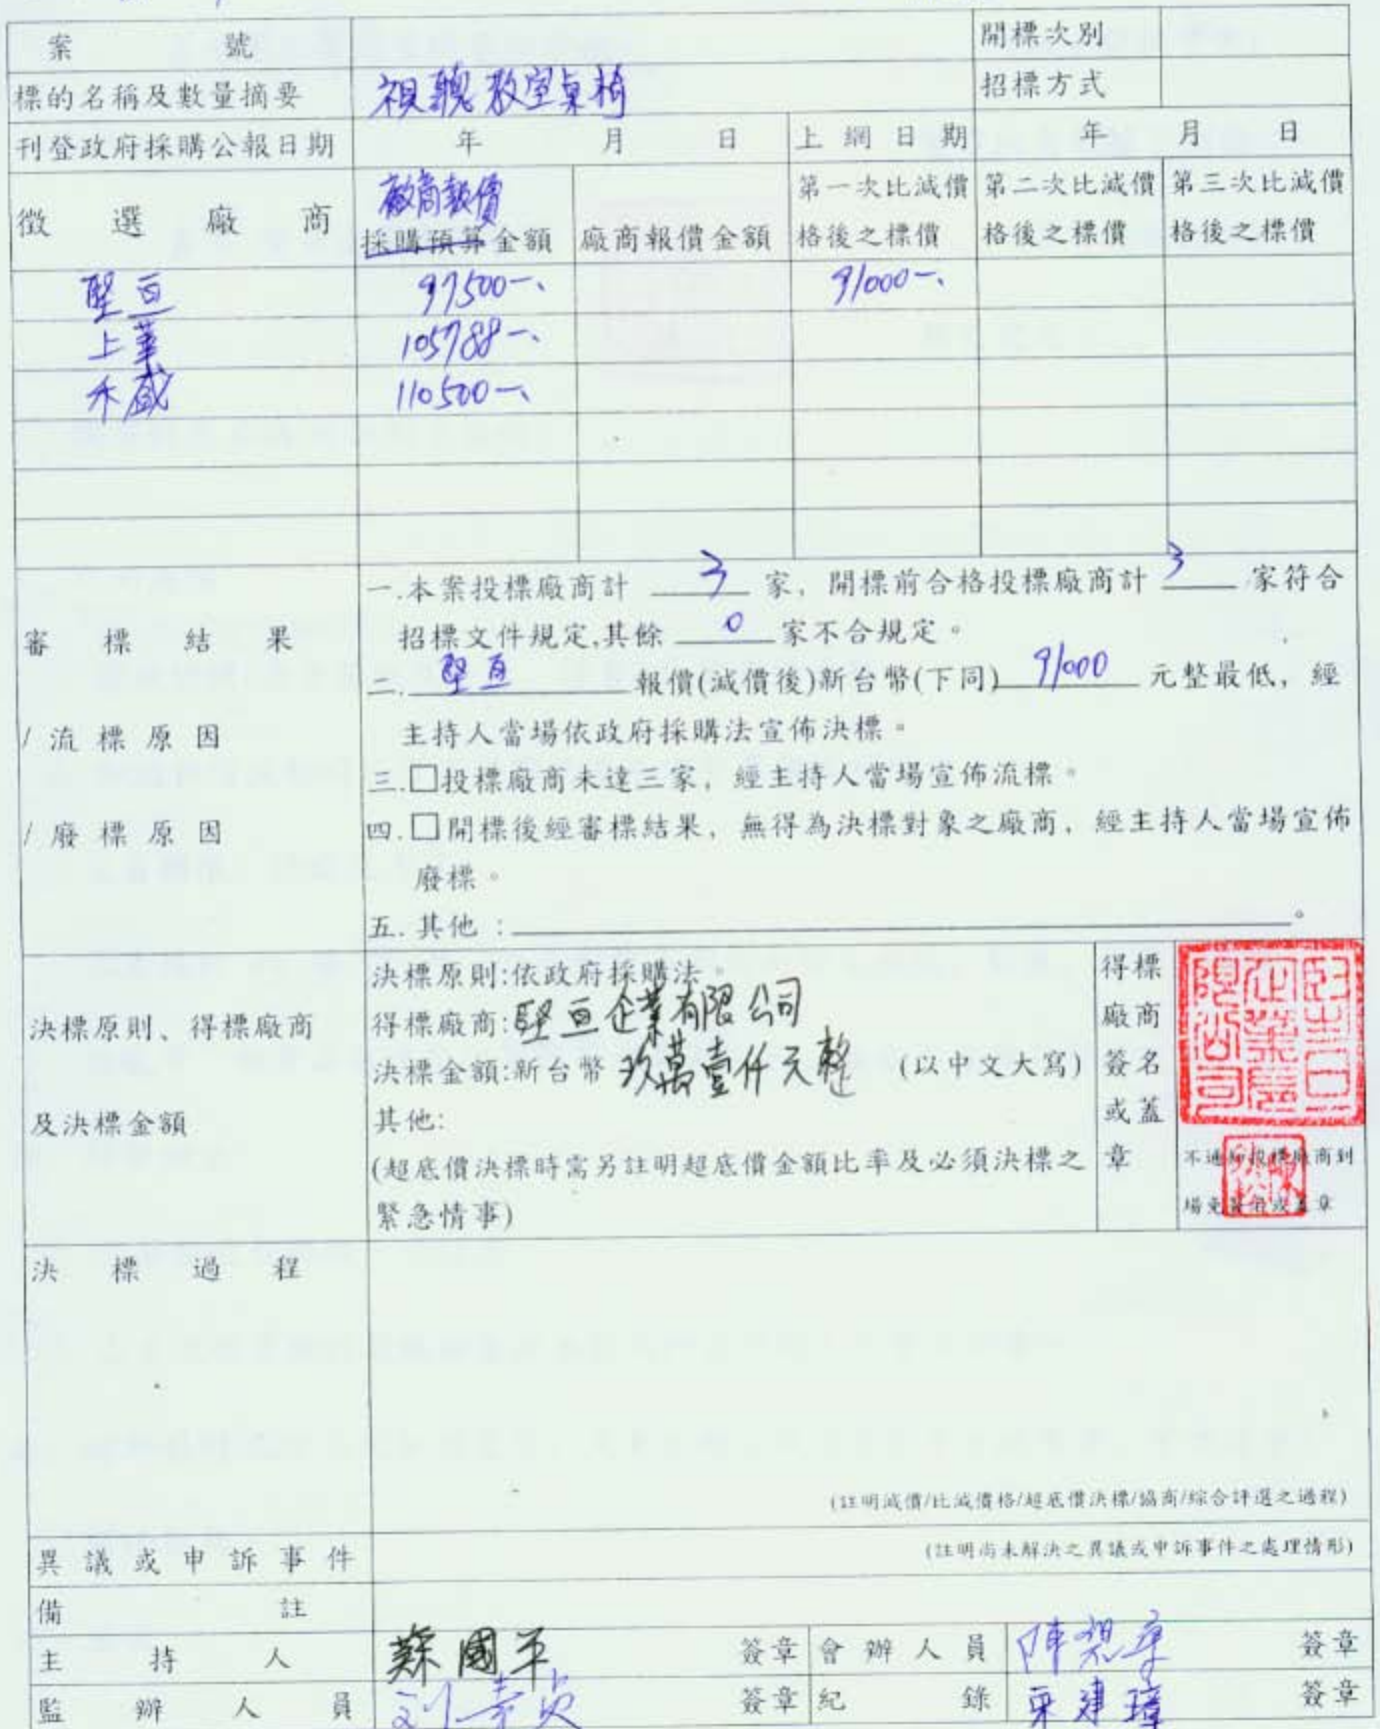 案號 開標次別
標的名稱及數量摘要 視聽教室桌椅 招標方式
刊登政府採購公報日期 年 月 日 上網日期 年 月 日
徵選廠商 廠商報價 採購預算金額 廠商報價金額 第一次比減價格後之標價 第二次比減價格後之標價 第三次比減價格後之標價
堅亘 97500-. 91000-.
上華 105788-.
禾盛 110500-.
審標結果
/流標原因
/廢標原因
一.本案投標廠商計 3 家，開標前合格投標廠商計 3 家符合
招標文件規定,其餘 0 家不合規定。
二. 堅亘 報價(減價後)新台幣(下同) 91000 元整最低，經
主持人當場依政府採購法宣佈決標。
三.□投標廠商未達三家，經主持人當場宣佈流標。
四.□開標後經審標結果，無得為決標對象之廠商，經主持人當場宣佈
廢標。
五.其他：。
決標原則、得標廠商
及決標金額
決標原則:依政府採購法。
得標廠商:堅亘企業有限公司
決標金額:新台幣 玖萬壹仟元整 (以中文大寫)
其他:
(超底價決標時需另註明超底價金額比率及必須決標之
緊急情事)
得標
廠商
簽名
或蓋
章
不通知投標廠商到
場免簽名或蓋章
決標過程
(註明減價/比減價格/超底價決標/協商/綜合評選之過程)
異議或申訴事件 (註明尚未解決之異議或申訴事件之處理情形)
備註
主持人 蘇國平 簽章 會辦人員 簽章
監辦人員 簽章 紀錄 簽章